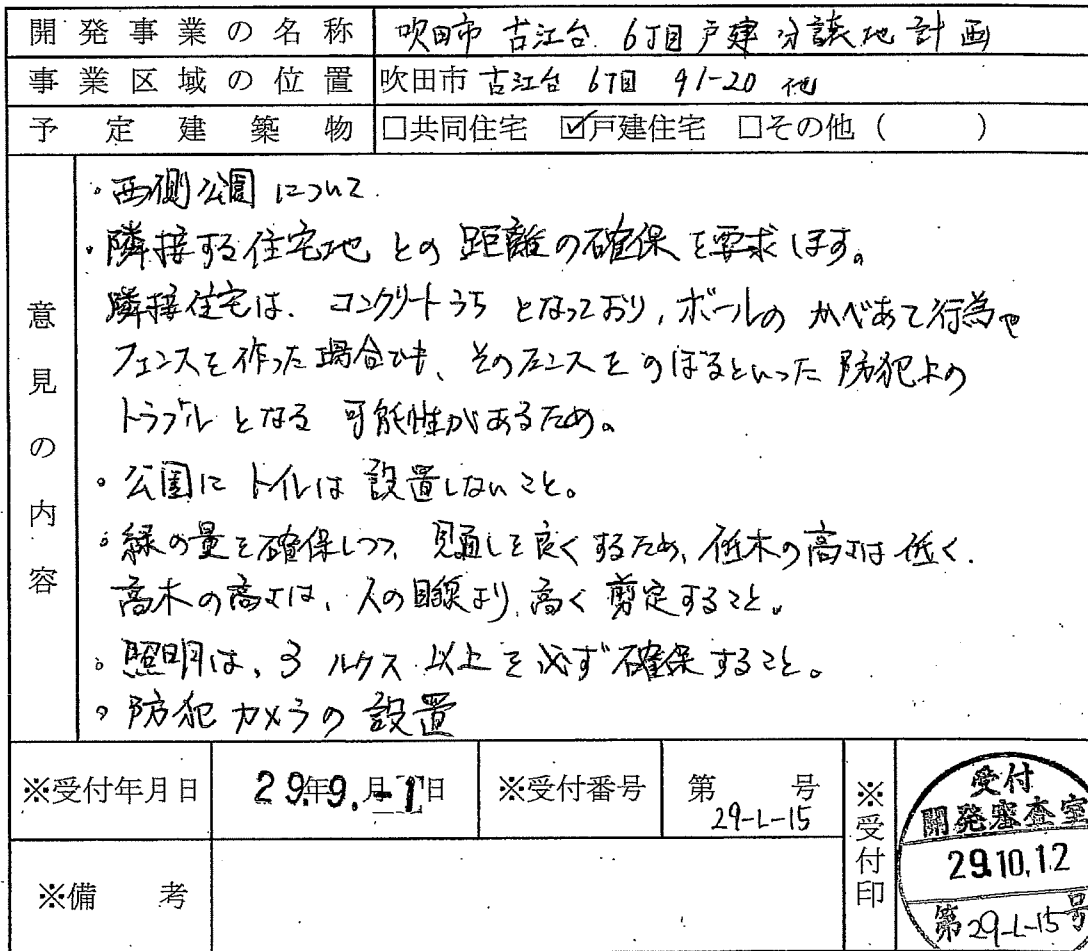 開発事業の名称 吹田市 古江台 6丁目戸建分譲地計画
事業区域の位置 吹田市 古江台 6丁目 91-20 他
予定建築物 □共同住宅 ☑戸建住宅 □その他（　　　）
意見の内容
・西側公園について
・隣接する住宅地 との 距離の確保を要求します。
隣接住宅は、コンクリートうち となっており、ボールの かべあて行為や
フェンスを作った場合でも、そのフェンスをのぼるといった 防犯上の
トラブル となる 可能性があるため。
・公園に トイレは 設置しないこと。
・緑の量を確保しつつ、見通しを良くするため、低木の高さは低く、
高木の高さは、人の目線より、高く 剪定すること。
・照明は、3 ルクス 以上を必ず確保すること。
・防犯カメラの 設置
※受付年月日 29年9月-1日 ※受付番号 第 29-L-15 号 ※受付印
受付
開発審査室
29.10.12
第29-L-15号
※備考